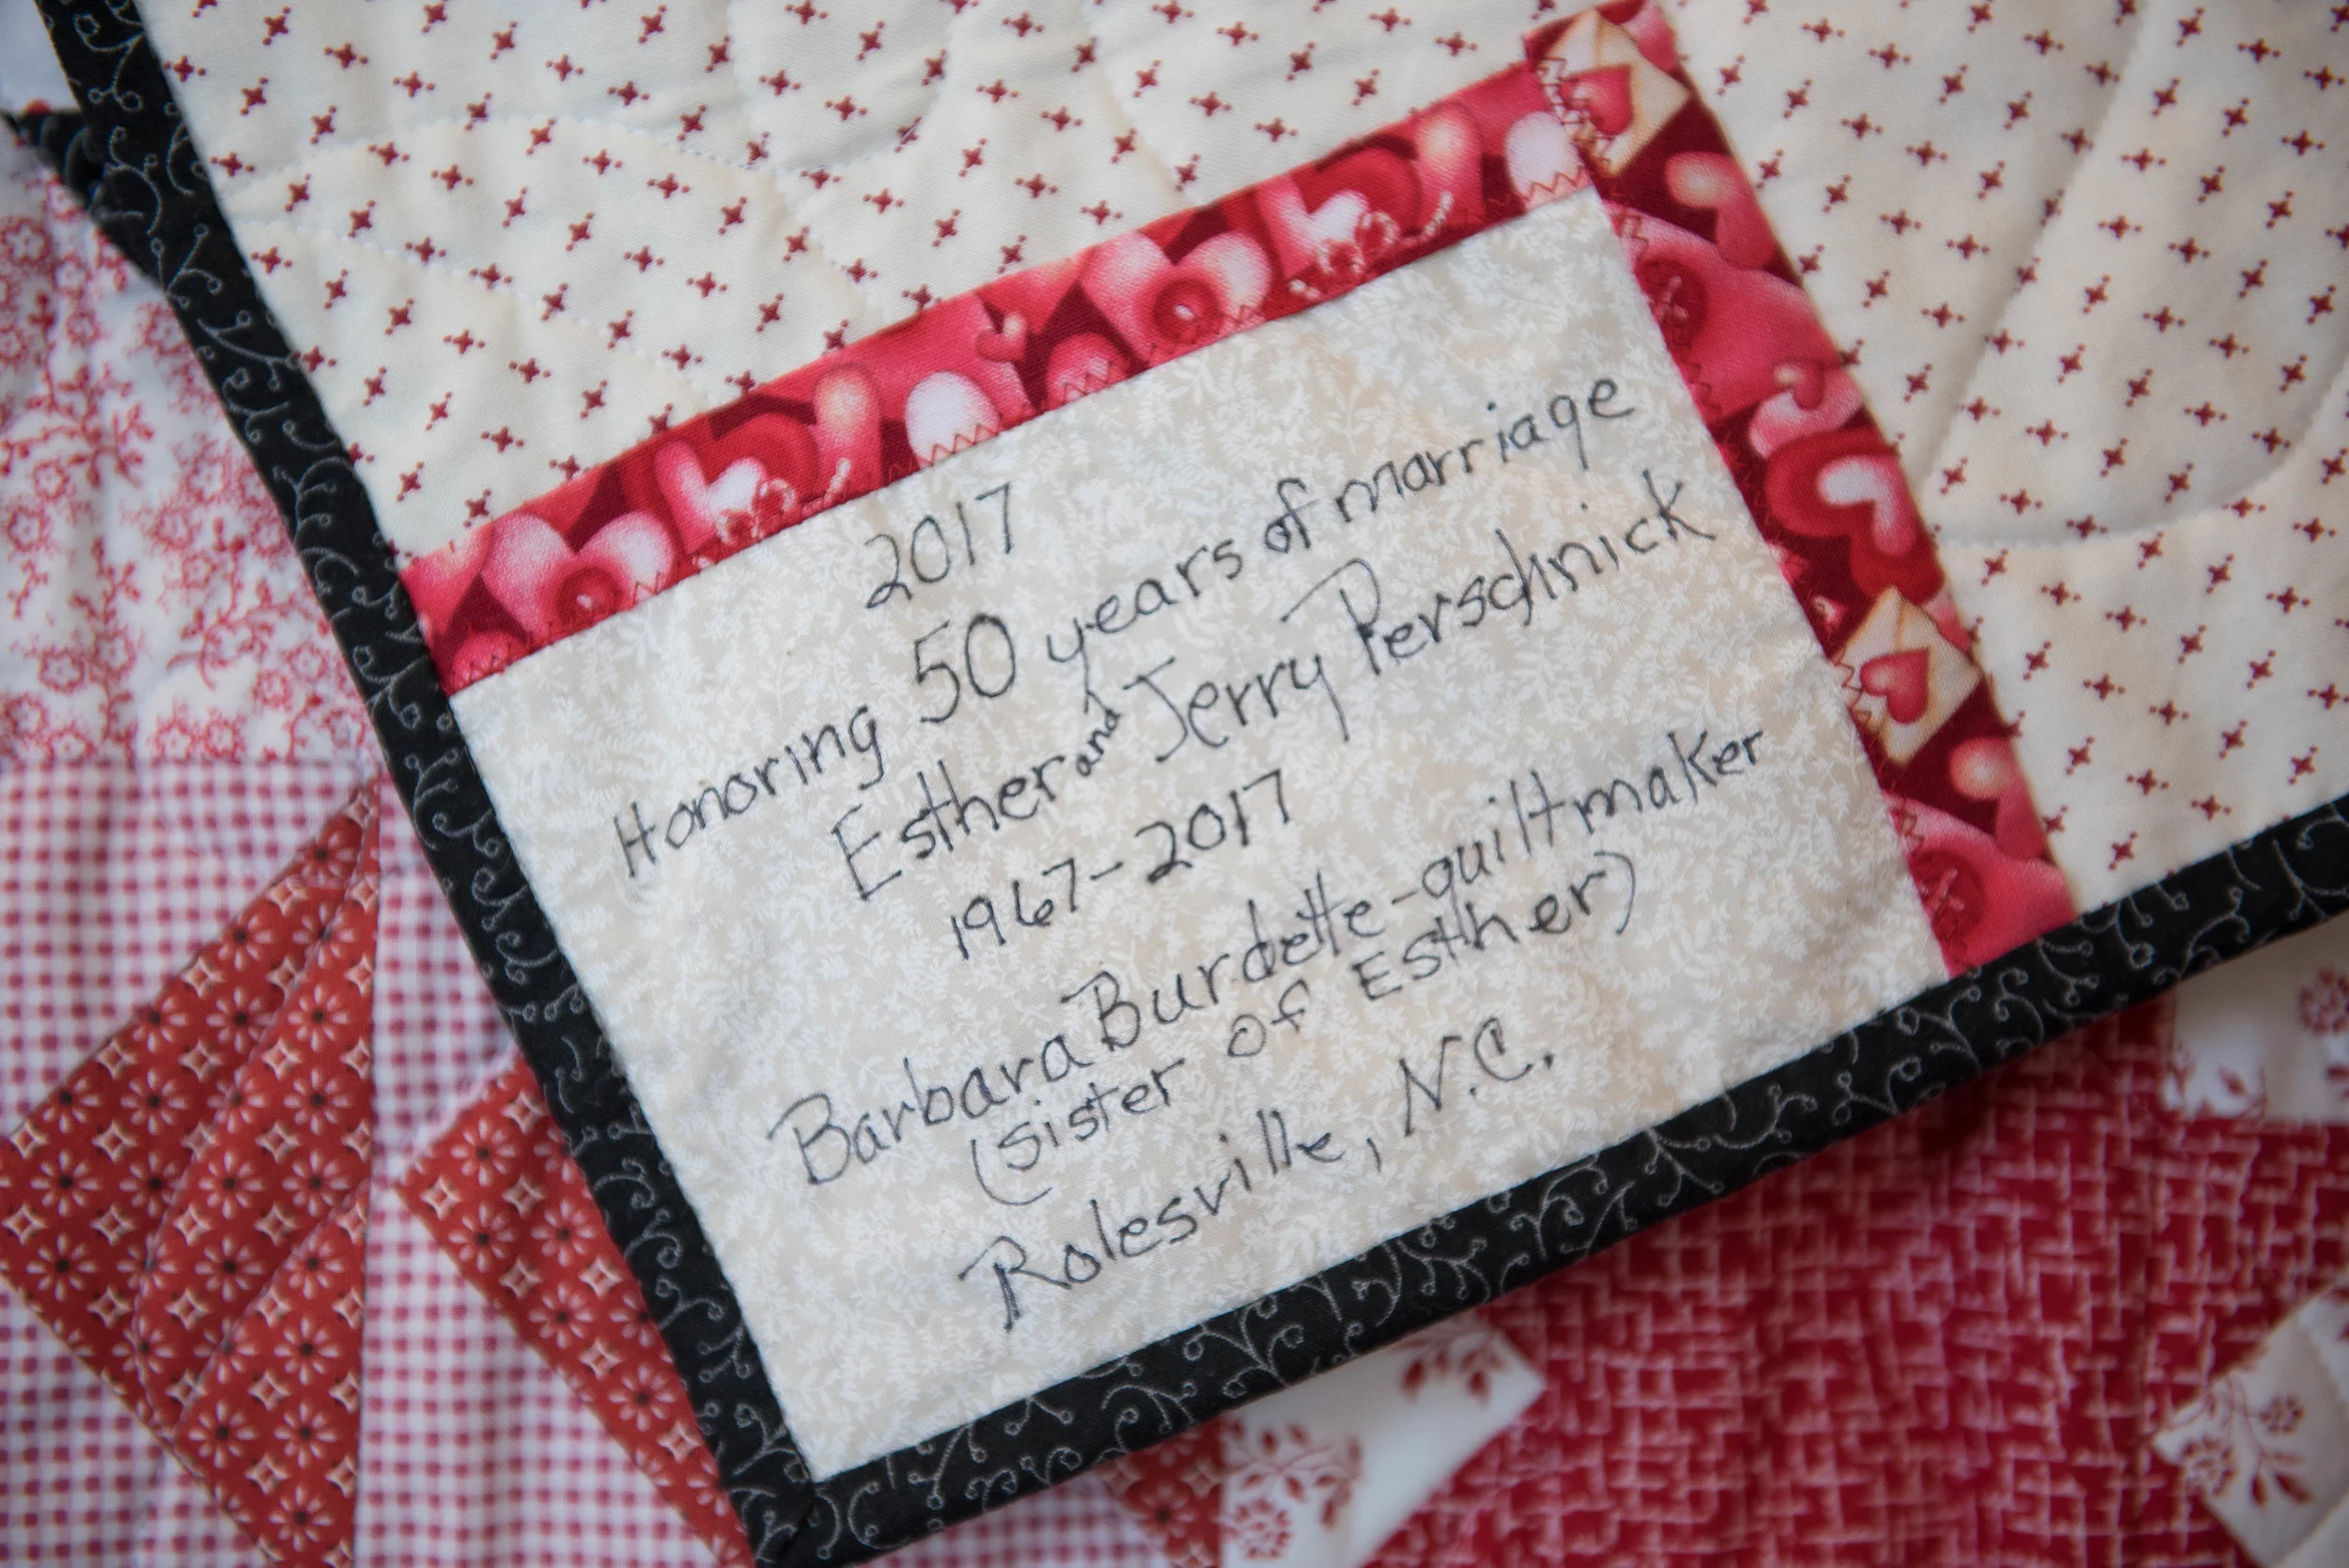 2017
Honoring 50 years of marriage
Esther and Jerry Perschnick
1967-2017
Barbara Burdette-quiltmaker
(sister of Esther)
Rolesville, N.C.